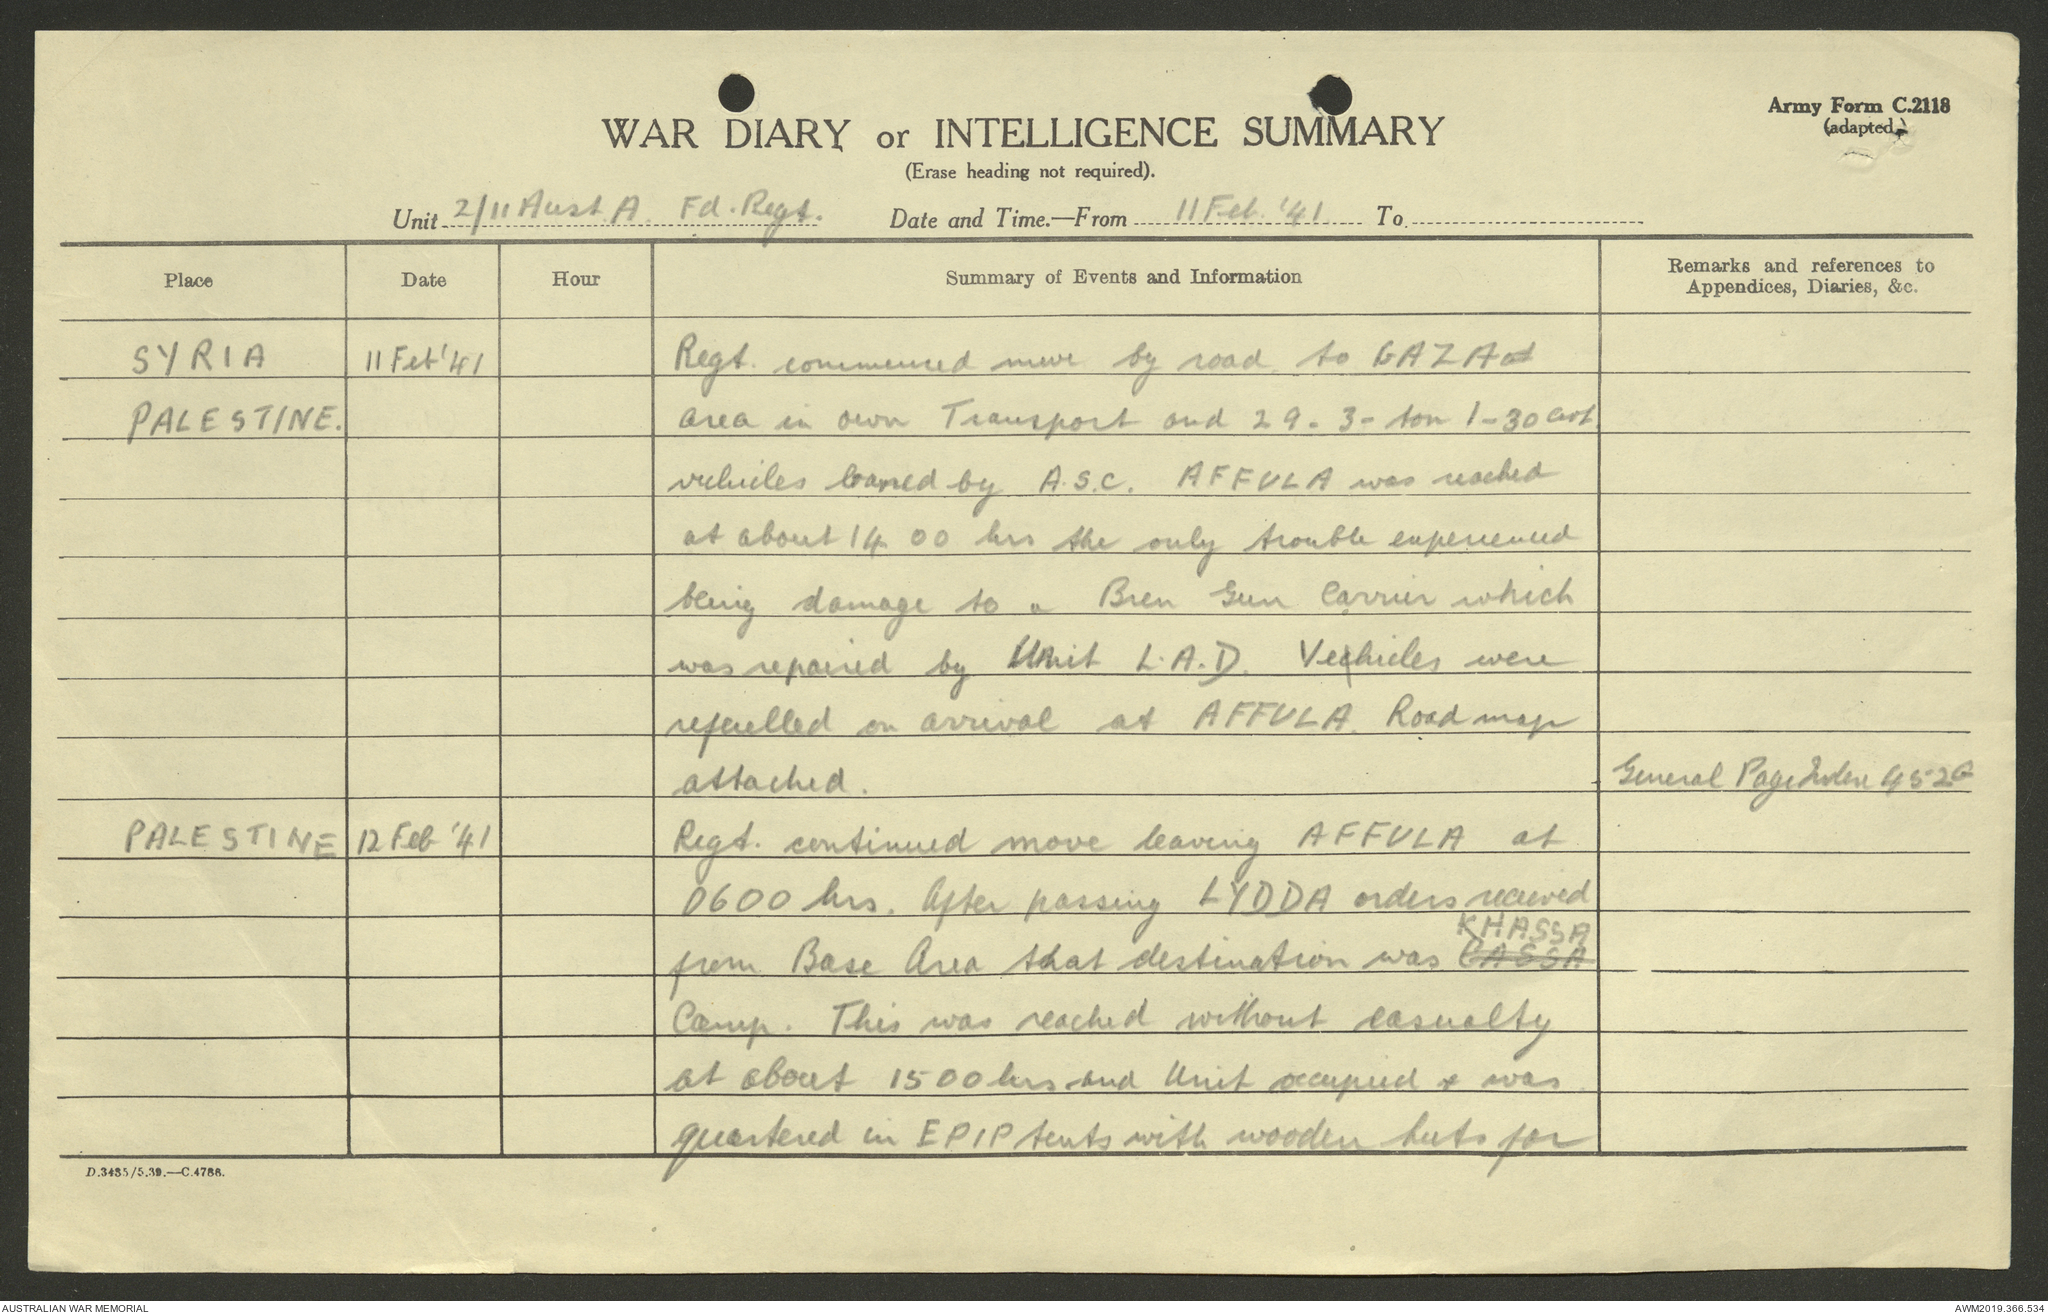 Army Form C.2118
(adapted)
WAR DIARY or INTELLIGENCE SUMMARY
(Erase heading not required).
Unit 2/11 Aust. A. Fd. Regt. Date and Time.—From 11 Feb. '41 To
Place Date Hour Summary of Events and Information Remarks and references to
Appendices, Diaries, &c.
SYRIA 11 Feb '41 Regt. commenced move by road to GAZA
PALESTINE. area in own Transport and 29 - 3 - ton 1 - 30 cwt
vehicles loaned by A.S.C. AFFULA was reached
at about 14 00 hrs the only trouble experienced
being damage to a Bren Gun Carrier which
was repaired by Unit L.A.D. Vehicles were
refuelled on arrival at AFFULA. Road map
attached. General Page Index 452
PALESTINE 12 Feb '41 Regt. continued move leaving AFFULA at
0600 hrs. After passing LYDDA orders received
KHASSA
from Base Area that destination was GASSA
Camp. This was reached without casualty
at about 1500 hrs and Unit occupied & was
quartered in EPIP tents with wooden huts for
D.3435/5.39.—C.4788.
AUSTRALIAN WAR MEMORIAL AWM2019.366.534